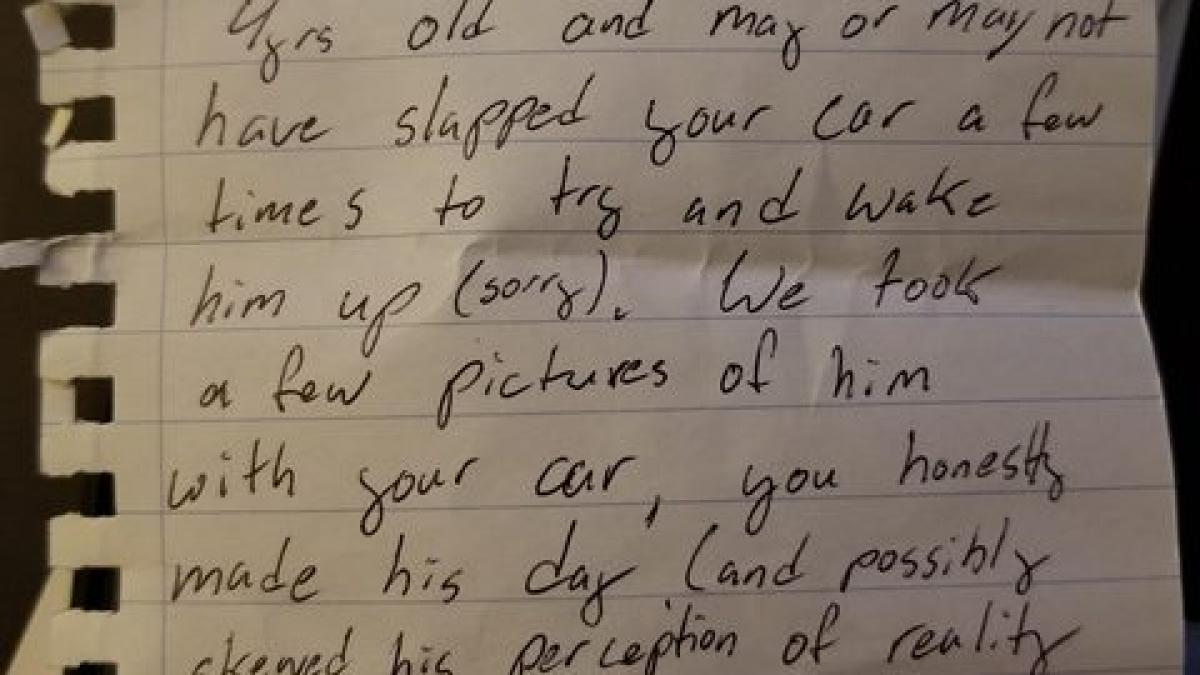 4yrs old and may or may not
have slapped your car a few
times to try and wake
him up (sorry). We took
a few pictures of him
with your car, you honestly
made his day (and possibly
skewed his perception of reality